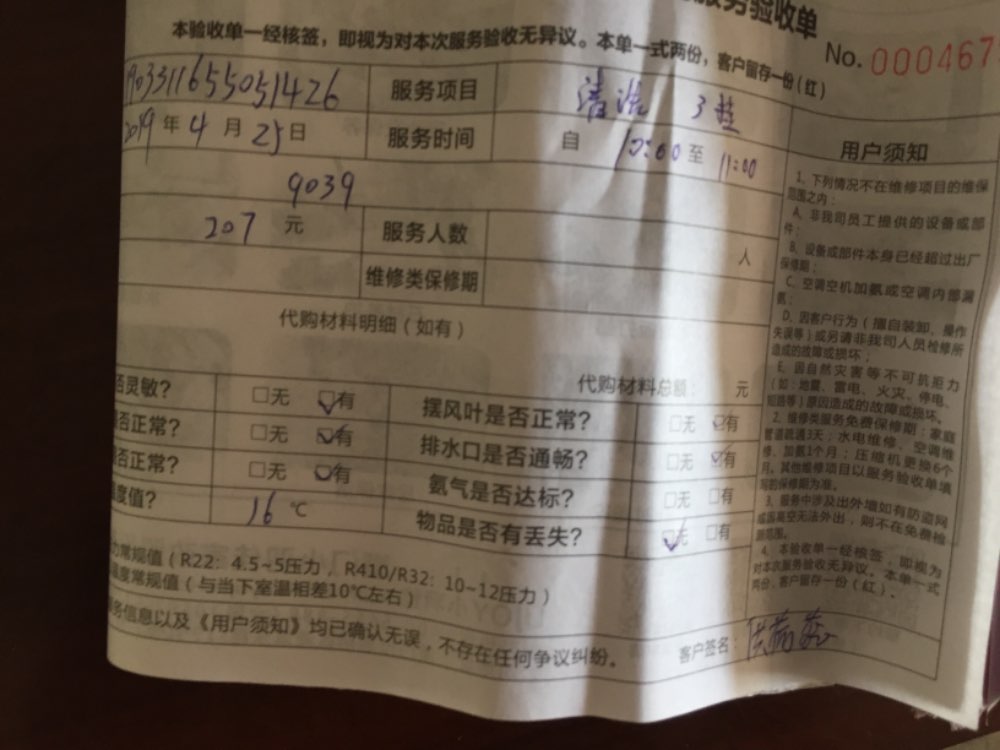 服务验收单
本验收单一经核签，即视为对本次服务验收无异议。本单一式两份，客户留存一份（红）
No. 000467
1903311655051426 服务项目 清洗 3挂
2019 年 4 月 25 日 服务时间 自 10:00 至 11:00
9039
207 元 服务人数 人
维修类保修期
代购材料明细（如有）
代购材料总额： 元
否灵敏？ □无 ☑有 摆风叶是否正常？ □无 ☑有
是否正常？ □无 ☑有 排水口是否通畅？ □无 ☑有
是否正常？ □无 ☑有 氨气是否达标？ □无 □有
温度值？ 16 ℃ 物品是否有丢失？ ☑无 □有
力常规值（R22：4.5~5压力，R410/R32：10~12压力）
温度常规值（与当下室温相差10℃左右）
务信息以及《用户须知》均已确认无误，不存在任何争议纠纷。
客户签名：
用户须知
1、下列情况不在维修项目的维保
范围之内：
A、非我司员工提供的设备或部
件；
B、设备或部件本身已经超过出厂
保修期；
C、空调空机加氨或空调内部漏
氨；
D、因客户行为（擅自装卸、操作
失误等）或另请非我司人员检修所
造成的故障或损坏；
E、因自然灾害等不可抗拒力
（如：地震、雷电、火灾、停电、
短路等）原因造成的故障或损坏。
2、维修类服务免费保修期：家庭
管道疏通3天；水电维修、空调维
修、加氨1个月；压缩机更换6个
月。其他维修项目以服务验收单填
写的保修期为准。
3、服务中涉及出外墙如有防盗网
或因高空无法外出，则不在免费检
测范围。
4、本验收单一经核签，即视为
对本次服务验收无异议。本单一式
两份，客户留存一份（红）。